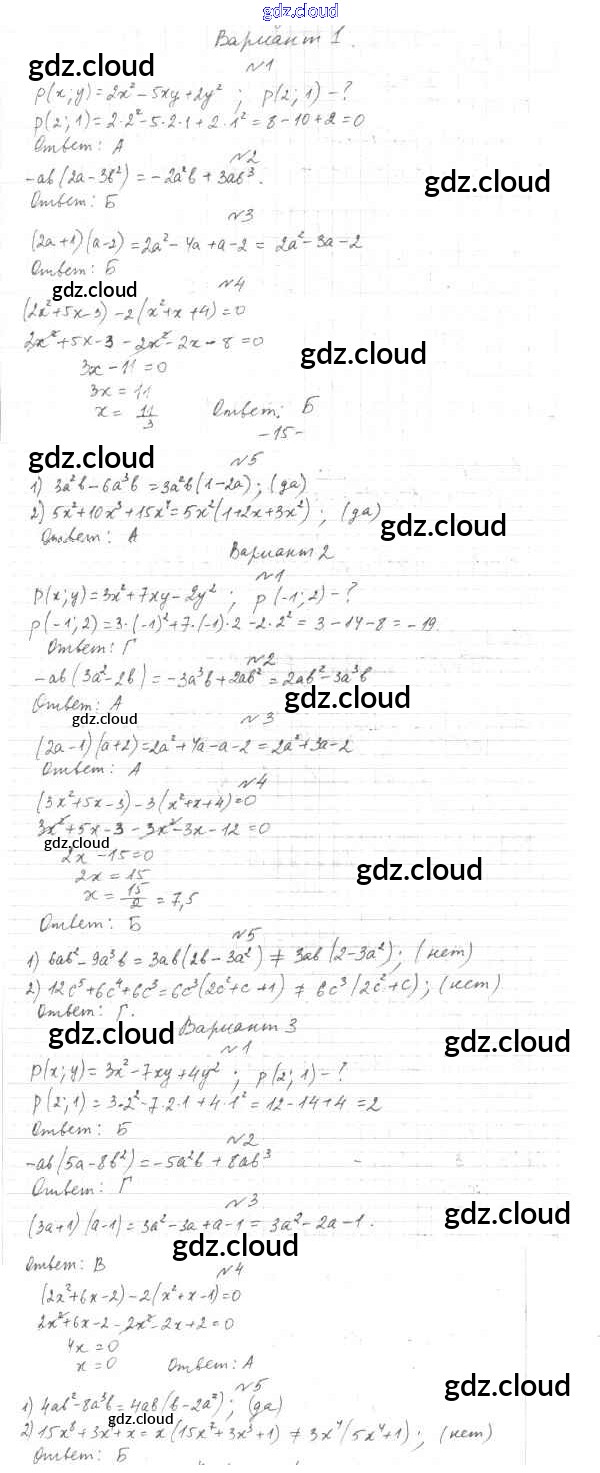 gdz.cloud
Вариант 1.
gdz.cloud
№1
p(x;y)=2x²-5xy+2y² ; p(2;1)-?
p(2;1)=2·2²-5·2·1+2·1²=8-10+2=0
Ответ: А
№2
-ab(2a-3b²)=-2a²b+3ab³.
gdz.cloud
Ответ: Б
№3
(2a+1)(a-2)=2a²-4a+a-2=2a²-3a-2
Ответ: Б
gdz.cloud
№4
(2x²+5x-3)-2(x²+x+4)=0
2x²+5x-3-2x²-2x-8=0
gdz.cloud
3x-11=0
3x=11
x=11/3 Ответ: Б
-15-
gdz.cloud
№5
1) 3a²b-6a³b=3a²b(1-2a); (да)
2) 5x²+10x³+15x⁴=5x²(1+2x+3x²); (да)
gdz.cloud
Ответ: А
Вариант 2
№1
p(x;y)=3x²+7xy-2y² ; p(-1;2)-?
p(-1;2)=3·(-1)²+7·(-1)·2-2·2²=3-14-8=-19.
Ответ: Г
№2
-ab(3a²-2b)=-3a³b+2ab²=2ab²-3a³b
gdz.cloud
Ответ: А
gdz.cloud
№3
(2a-1)(a+2)=2a²+4a-a-2=2a²+3a-2
Ответ: А
№4
(3x²+5x-3)-3(x²+x+4)=0
3x²+5x-3-3x²-3x-12=0
gdz.cloud
2x-15=0
gdz.cloud
2x=15
x=15/2=7,5
Ответ: Б
№5
1) 6ab²-9a³b=3ab(2b-3a²)≠3ab(2-3a²); (нет)
2) 12c⁵+6c⁴+6c³=6c³(2c²+c+1)≠6c³(2c²+c); (нет)
Ответ: Г.
gdz.cloud
Вариант 3
gdz.cloud
№1
p(x;y)=3x²-7xy+4y² ; p(2;1)-?
p(2;1)=3·2²-7·2·1+4·1²=12-14+4=2
Ответ: Б
№2
-ab(5a-8b²)=-5a²b+8ab³
Ответ: Г
№3
gdz.cloud
(3a+1)(a-1)=3a²-3a+a-1=3a²-2a-1.
gdz.cloud
Ответ: В
№4
(2x²+6x-2)-2(x²+x-1)=0
2x²+6x-2-2x²-2x+2=0
4x=0
x=0 Ответ: А
№5
gdz.cloud
1) 4ab²-8a³b=4ab(b-2a²); (да)
gdz.cloud
2) 15x⁸+3x⁴+x=x(15x⁷+3x³+1)≠3x⁴(5x⁴+1); (нет)
Ответ: Б